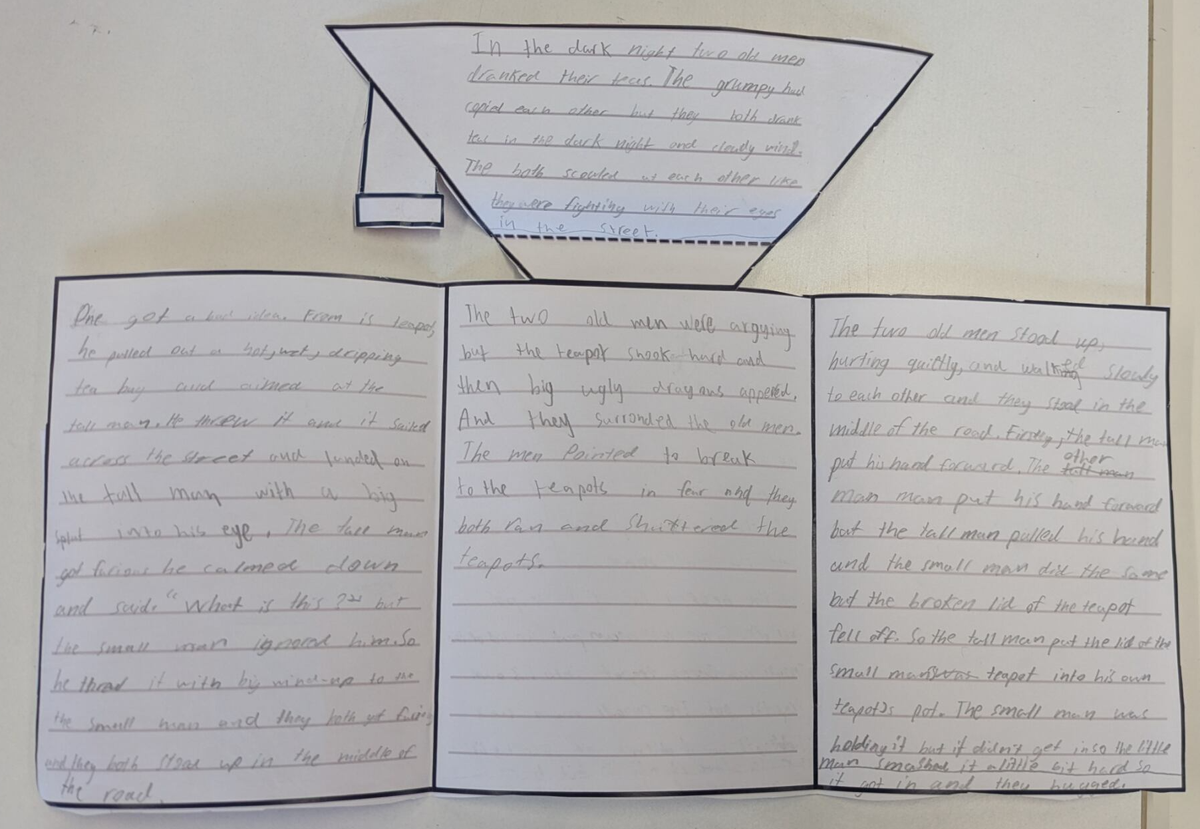 In the dark night two old men
dranked their teas. The grumpy had
copied each other but they both drank
tea in the dark night and cloudy wind.
The both scouled at each other like
they were fighting with their eyes
in the street.
One got a bad idea. From is teapot,
he pulled out a hot, wet, dripping
tea bag and aimed at the
tall man. He threw it and it sailed
across the street and landed on
the tall man with a big
splat into his eye. The tall man
got furious he calmed down
and said. "What is this?" but
the small man ignored him. So
he thred it with big wind-up to the
the small man and they both got
and they both stood up in the middle of
the road.
The two old men were argying
but the teapot shook hard and
then big ugly dragons appered.
And they surronded the old men.
The men Pointed to break
to the teapots in fear and they
both ran and Shuttered the
teapots.
The two old men stood up,
hurting quitly, and walked slowly
to each other and they stood in the
middle of the road. Firstly, the tall man
put his hand forward. The other tall man
man man put his hand forward
but the tall man pulled his hand
and the small man did the same
but the broken lid of the teapot
fell off. So the tall man put the lid of the
small man's was teapot into his own
teapot's pot. The small man was
holding it but it didn't get in so the little
man smashed it a little bit hard so
it got in and they hugged.